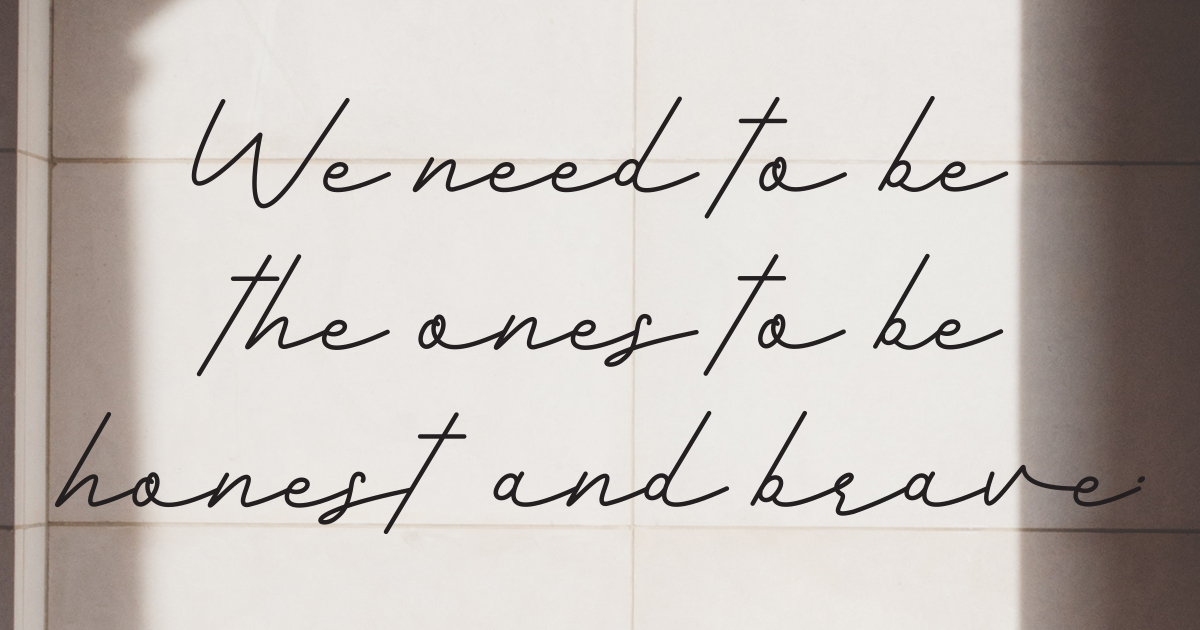 We need to be
the ones to be
honest and brave.